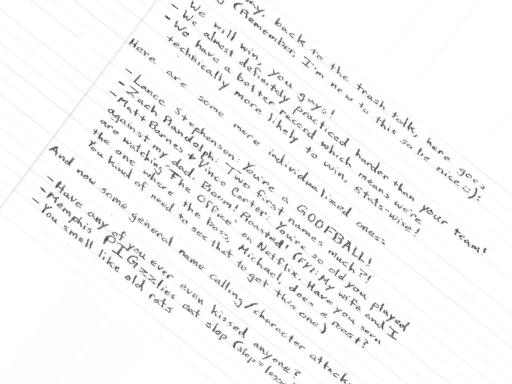 ay, back to the trash talk, here goes
(Remember, I'm new to this so be nice :)):
- We will win, you guys!
- We almost definitely practiced harder than your team!
- We have a better record which means we're
technically more likely to win, stats-wise!
Here are some more individualized ones:
- Lance Stephenson: You're a GOOFBALL!
- Zach Randolph: Two first names much?!
- Matt Barnes + Vince Carter: You're so old you played
against my dad. Boom! Roasted! (FYI: My wife and I
are watching The Office on Netflix. Have you seen
the one where the boss, Michael, does a roast?
You kind of need to see that to get this one)
And now some general name calling/character attacks
- Have any of you ever even kissed anyone?
- Memphis PIGzzlies eat slop (slop =
- You smell like old rats